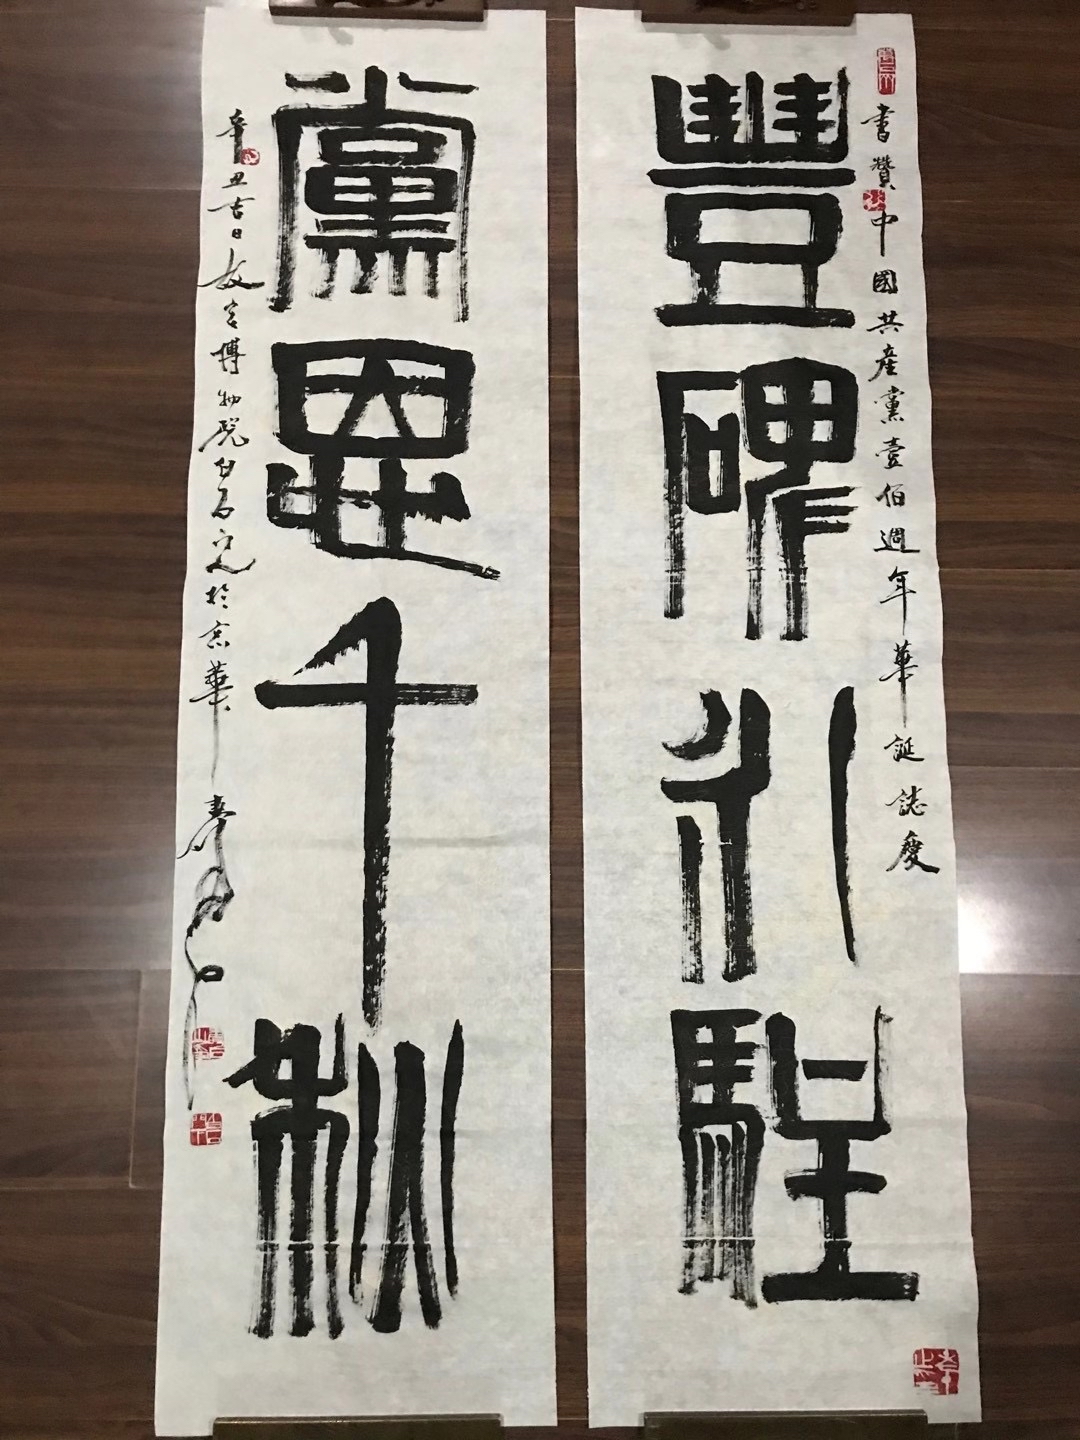 書贊中國共產黨壹佰週年華誕誌慶
豐碑永駐
黨恩千秋
辛丑吉日故宮博物院於京華